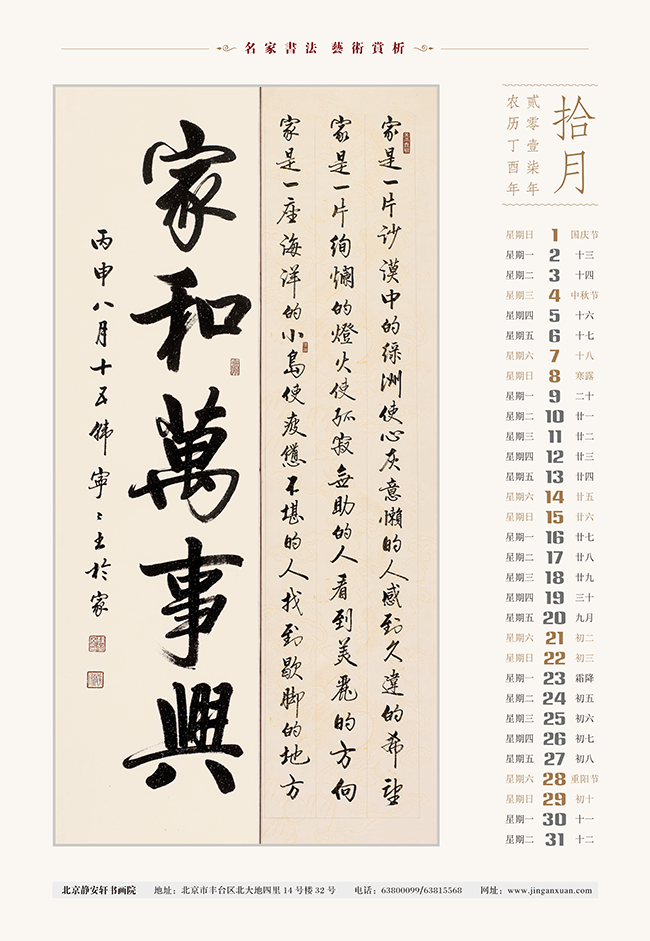 名家書法 藝術賞析
家是一片沙漠中的绿洲使心灰意懒的人感到久違的希望
家是一片绚爛的燈火使孤寂無助的人看到美麗的方向
家是一座海洋的小島使疲憊不堪的人找到歇脚的地方
家和萬事興
丙申八月十五韩寧寧书於家
拾月
贰零壹柒年
农历丁酉年
星期日 1 国庆节
星期一 2 十三
星期二 3 十四
星期三 4 中秋节
星期四 5 十六
星期五 6 十七
星期六 7 十八
星期日 8 寒露
星期一 9 二十
星期二 10 廿一
星期三 11 廿二
星期四 12 廿三
星期五 13 廿四
星期六 14 廿五
星期日 15 廿六
星期一 16 廿七
星期二 17 廿八
星期三 18 廿九
星期四 19 三十
星期五 20 九月
星期六 21 初二
星期日 22 初三
星期一 23 霜降
星期二 24 初五
星期三 25 初六
星期四 26 初七
星期五 27 初八
星期六 28 重阳节
星期日 29 初十
星期一 30 十一
星期二 31 十二
北京静安轩书画院 地址：北京市丰台区北大地四里14号楼32号 电话：63800099/63815568 网址：www.jinganxuan.com